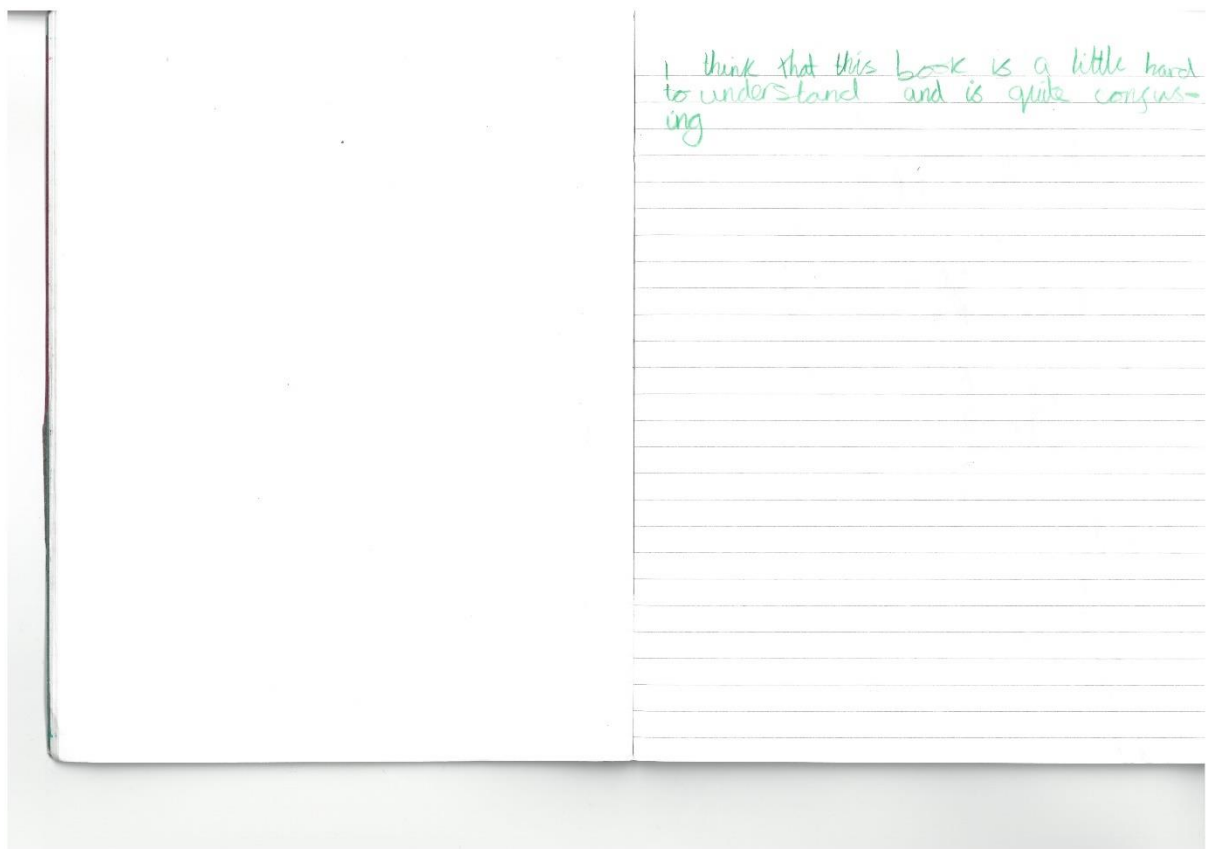 I think that this book is a little hard
to understand and is quite confus-
ing